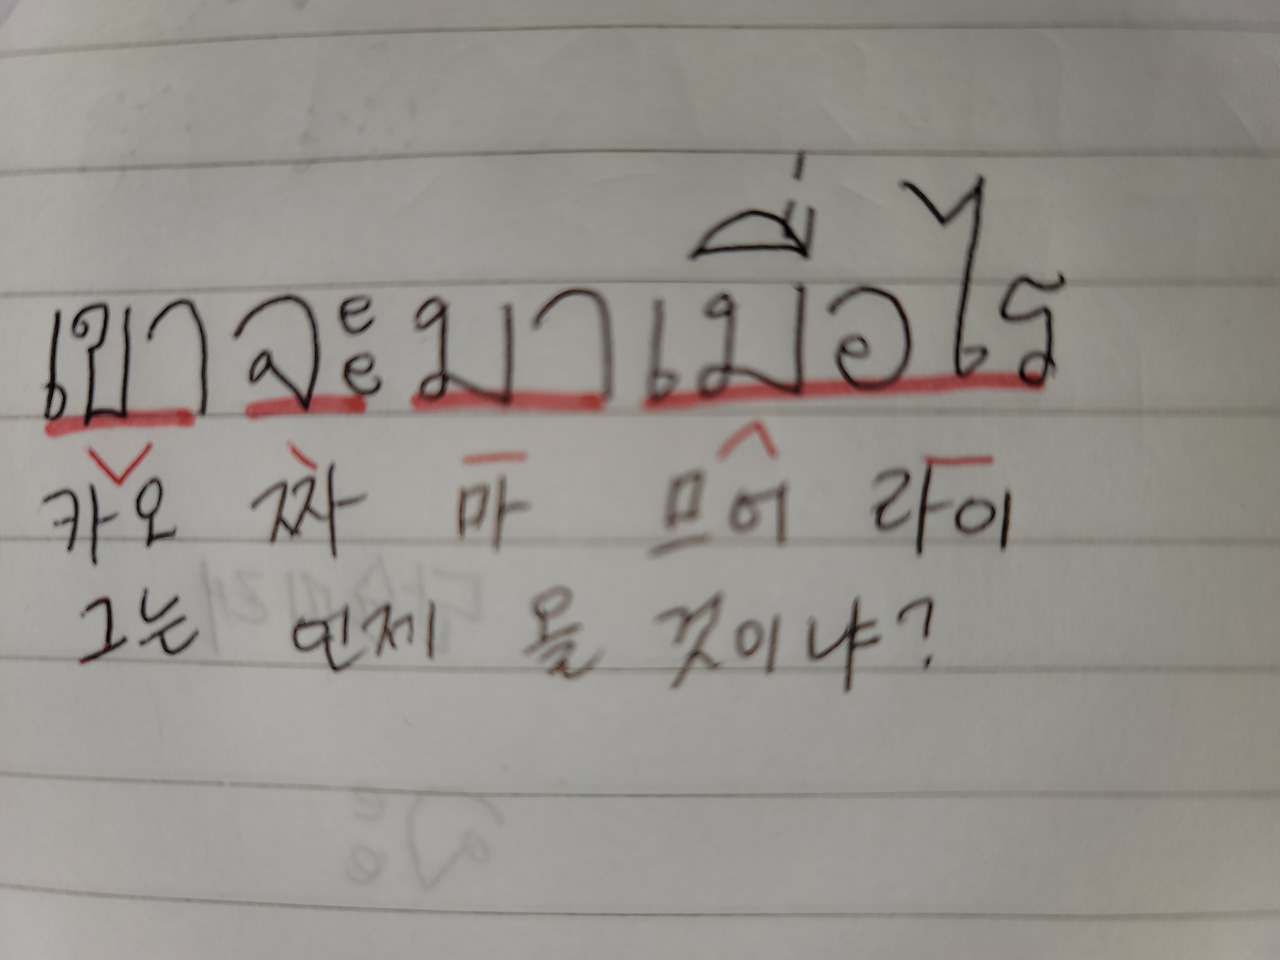 เขาจะมาเมื่อไร
카오 짜 마 므어 라이
그는 언제 올 것이냐?